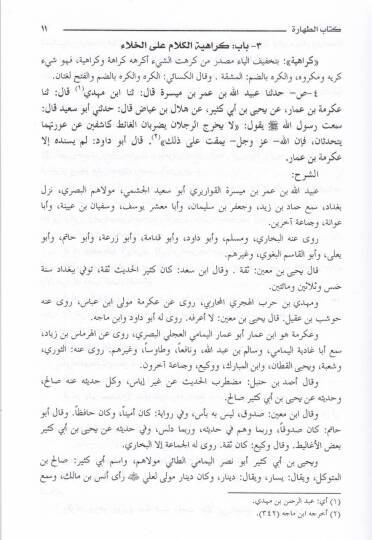 كتاب الطهارة ١١
٣- باب: كراهية الكلام على الخلاء
«كراهية»: بتخفيف الياء مصدر من كرهت الشيء أكرهه كراهة وكراهية، فهو شيء
كريه ومكروه، والكره بالضم: المشقة . وقال الكسائي: الكره والكره بالضم والفتح لغتان.
٤-ص- حدثنا عبيد الله بن عمر بن ميسرة قال: ثنا ابن مهدي(١) قال: ثنا
عكرمة بن عمار، عن يحيى بن أبي كثير، عن هلال بن عياض قال: حدثني أبو سعيد قال:
سمعت رسول الله ﷺ يقول: «لا يخرج الرجلان يضربان الغائط كاشفين عن عورتهما
يتحدثان، فإن الله- عز وجل- يمقت على ذلك»(٢). قال أبو داود: لم يسنده إلا
عكرمة بن عمار.
الشرح:
عبيد الله بن عمر بن ميسرة القواريري أبو سعيد الجشمي، مولاهم البصري، نزل
بغداد، سمع حماد بن زيد، وجعفر بن سليمان، وأبا معشر يوسف، وسفيان بن عيينة، وأبا
عوانة، وجماعة آخرين.
روى عنه البخاري، ومسلم، وأبو داود، وأبو قدامة، وأبو زرعة، وأبو حاتم، وأبو
يعلى، وأبو القاسم البغوي، وغيرهم.
قال يحيى بن معين: ثقة . وقال ابن سعد: كان كثير الحديث ثقة، توفي ببغداد سنة
خمس وثلاثين ومائتين.
ومهدي بن حرب الهجري المحاربي، روى عن عكرمة مولى ابن عباس، روى عنه
حوشب بن عقيل. قال يحيى بن معين: لا أعرفه. روى له أبو داود وابن ماجه.
وعكرمة هو ابن عمار أبو عمار اليمامي العجلي البصري، روى عن الهرماس بن زياد،
سمع أبا غادية اليمامي، وسالم بن عبد الله، ونافعاً، وطاوساً، وغيرهم. روى عنه: الثوري،
وشعبة، ويحيى القطان، وابن المبارك، ووكيع، وجماعة آخرون.
وقال أحمد بن حنبل: مضطرب الحديث عن غير إياس، وكل حديثه عنه صالح،
وحديثه عن يحيى بن أبي كثير صالح.
وقال ابن معين: صدوق، ليس به بأس، وفي رواية: كان أميناً، وكان حافظاً. وقال أبو
حاتم: كان صدوقاً، وربما وهم في حديثه، وربما دلس، وفي حديثه عن يحيى بن أبي كثير
بعض الأغاليط. وقال وكيع: كان ثقة. روى له الجماعة إلا البخاري.
ويحيى بن أبي كثير أبو نصر اليمامي الطائي مولاهم، واسم أبي كثير: صالح بن
المتوكل، ويقال: يسار، ويقال: دينار، وكان دينار مولى لعلي ﷺ رأى أنس بن مالك، وسمع
(١) أي: عبد الرحمن بن مهدي.
(٢) أخرجه ابن ماجه (٣٤٢).